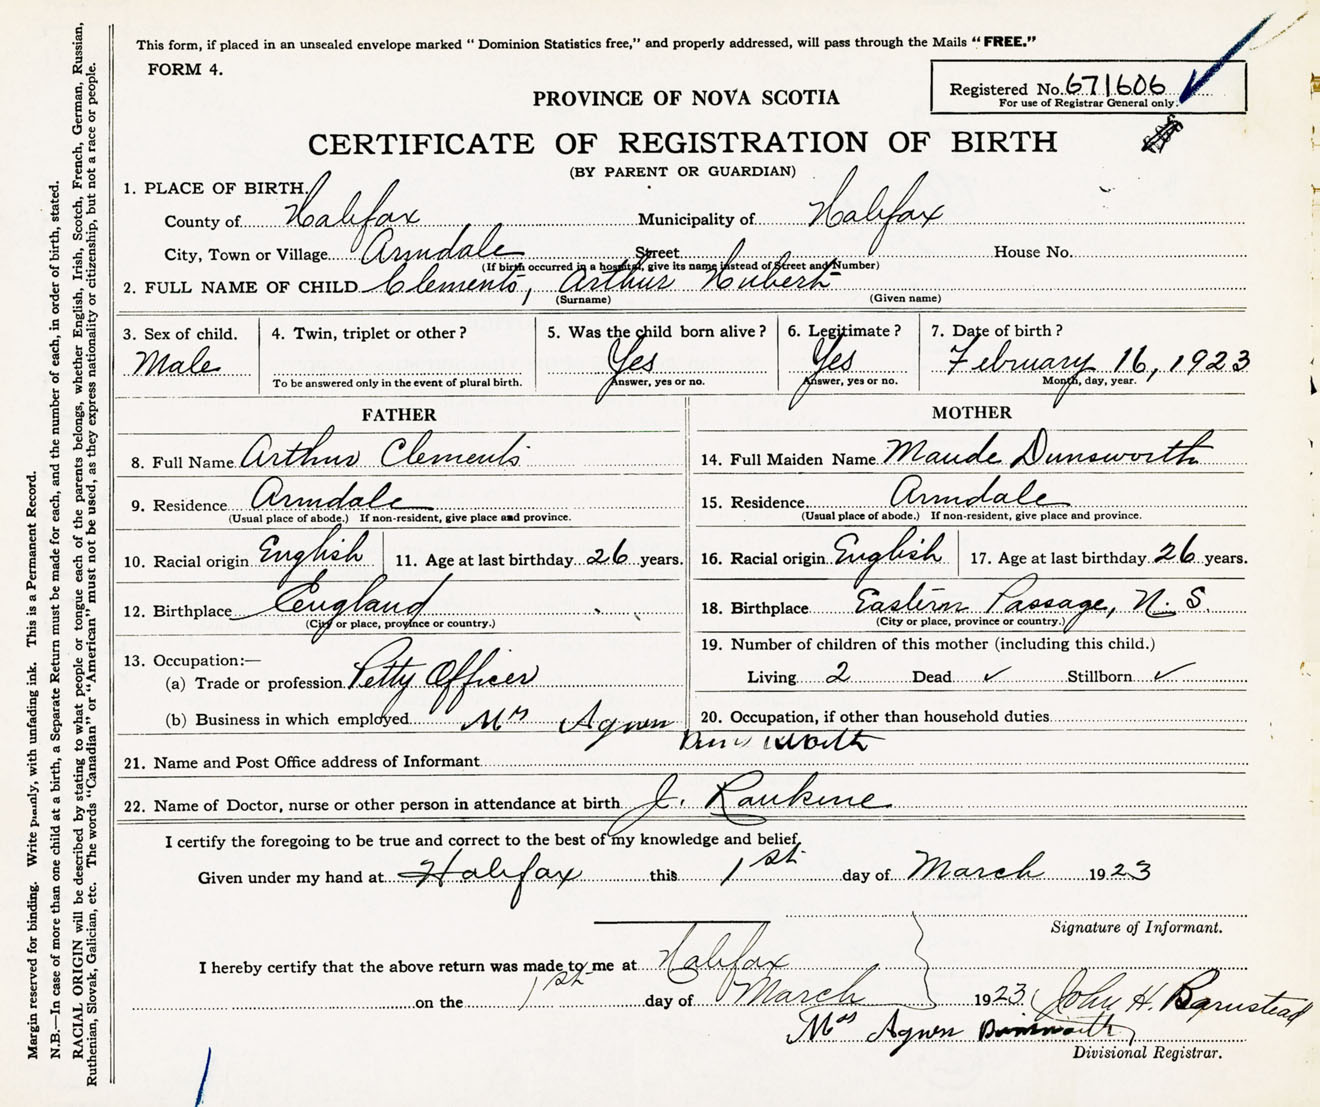 This form, if placed in an unsealed envelope marked "Dominion Statistics free," and properly addressed, will pass through the Mails "FREE."
FORM 4.
Registered No. 671606
For use of Registrar General only.
PROVINCE OF NOVA SCOTIA
CERTIFICATE OF REGISTRATION OF BIRTH
(BY PARENT OR GUARDIAN)
1. PLACE OF BIRTH.
County of Halifax Municipality of Halifax
City, Town or Village Armdale Street House No.
(If birth occurred in a hospital, give its name instead of Street and Number)
2. FULL NAME OF CHILD Clements, Arthur Hubert
(Surname) (Given name)
3. Sex of child. 4. Twin, triplet or other? 5. Was the child born alive? 6. Legitimate? 7. Date of birth?
Male Yes Yes February 16, 1923
To be answered only in the event of plural birth. Answer, yes or no. Answer, yes or no. Month, day, year.
FATHER
8. Full Name Arthur Clements
9. Residence Armdale
(Usual place of abode.) If non-resident, give place and province.
10. Racial origin English 11. Age at last birthday 26 years.
12. Birthplace England
(City or place, province or country.)
13. Occupation:—
(a) Trade or profession Petty Officer
(b) Business in which employed Mrs Agnes
MOTHER
14. Full Maiden Name Maude Dunsworth
15. Residence Armdale
(Usual place of abode.) If non-resident, give place and province.
16. Racial origin English 17. Age at last birthday 26 years.
18. Birthplace Eastern Passage, N. S.
(City or place, province or country.)
19. Number of children of this mother (including this child.)
Living 2 Dead ✓ Stillborn ✓
20. Occupation, if other than household duties
Dunsworth
21. Name and Post Office address of Informant
22. Name of Doctor, nurse or other person in attendance at birth J. Rankine
I certify the foregoing to be true and correct to the best of my knowledge and belief,
Given under my hand at Halifax this 1st day of March 1923
Signature of Informant.
I hereby certify that the above return was made to me at Halifax
on the 1st day of March 1923. John H. Barnstead
Mrs Agnes Dunsworth
Divisional Registrar.
Margin reserved for binding. Write plainly, with unfading ink. This is a Permanent Record.
N.B.—In case of more than one child at a birth, a Separate Return must be made for each, and the number of each, in order of birth, stated.
RACIAL ORIGIN will be described by stating to what people or tongue each of the parents belongs, whether English, Irish, Scotch, French, German, Russian,
Ruthenian, Slovak, Galician, etc. The words "Canadian" or "American" must not be used, as they express nationality or citizenship, but not a race or people.